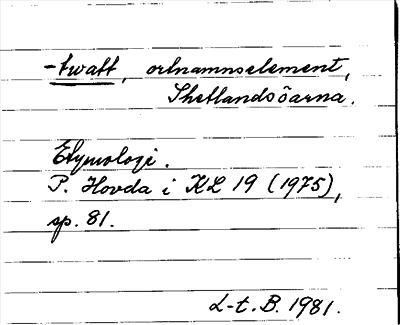 -twatt, ortnamnselement,
Shetlandsöarna.
Etymologi.
P. Hovda i KL 19 (1975),
sp. 81.
L-t. B. 1981.